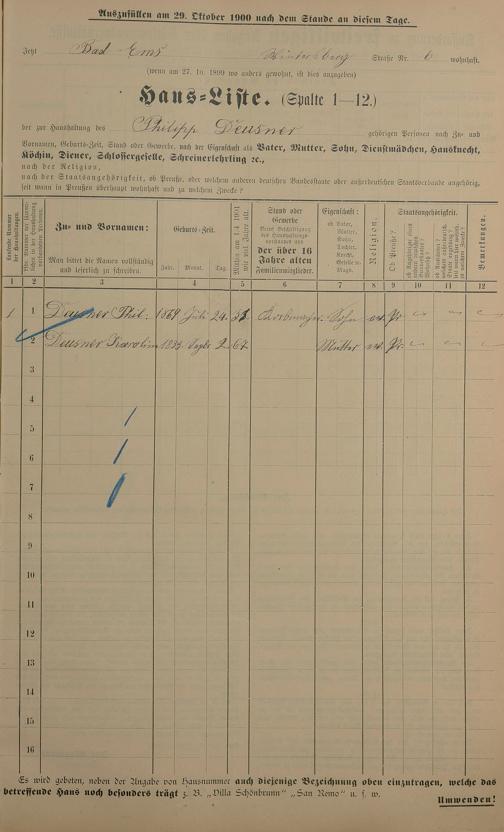 Auszufüllen am 29. Oktober 1900 nach dem Stande an diesem Tage.
Jetzt Bad-Ems Wintersberg Straße Nr. 6 wohnhaft.
(wenn am 27. 10. 1899 wo anders gewohnt, ist dies anzugeben)
Haus-Liste. (Spalte 1—12.)
der zur Haushaltung des Philipp Deusner gehörigen Personen nach Zu- und
Vornamen, Geburts-Zeit, Stand oder Gewerbe, nach der Eigenschaft als Vater, Mutter, Sohn, Dienstmädchen, Hausknecht,
Köchin, Diener, Schlossergeselle, Schreinerlehrling ꝛc.,
nach der Religion,
nach der Staatsangehörigkeit, ob Preuße, oder welchem anderen deutschen Bundesstaate oder außerdeutschen Staatsverbande angehörig,
seit wann in Preußen überhaupt wohnhaft und zu welchem Zwecke?
Laufende Nummer der Haushaltungen.
Zu- und Vornamen:
Man bittet die Namen vollständig und leserlich zu schreiben.
Geburts-Zeit.
Jahr. Monat. Tag.
Mithin am 1.4 1901 wie viel Jahre alt.
Stand oder Gewerbe
der über 16 Jahre alten Familienmitglieder.
Eigenschaft:
ob Vater, Mutter, Sohn, Tochter, Knecht, Geselle ob. Magd.
Religion.
Staatsangehörigkeit.
Ob Preuße?
Bemerkungen.
1 2 3 4 5 6 7 8 9 10 11 12
1 1 Deusner Phil. 1869 Juli 24. 31 Sohn ev. Pr. — — —
2 Deusner Karolin 1833 Septbr 2. 67 Mutter ev. Pr. — — —
3
4
5
6
7
8
9
10
11
12
13
14
15
16
Es wird gebeten, neben der Angabe von Hausnummer auch diejenige Bezeichnung oben einzutragen, welche das
betreffende Haus noch besonders trägt z. B. „Villa Schönbrunn" „San Remo" u. s. w.
Umwenden!